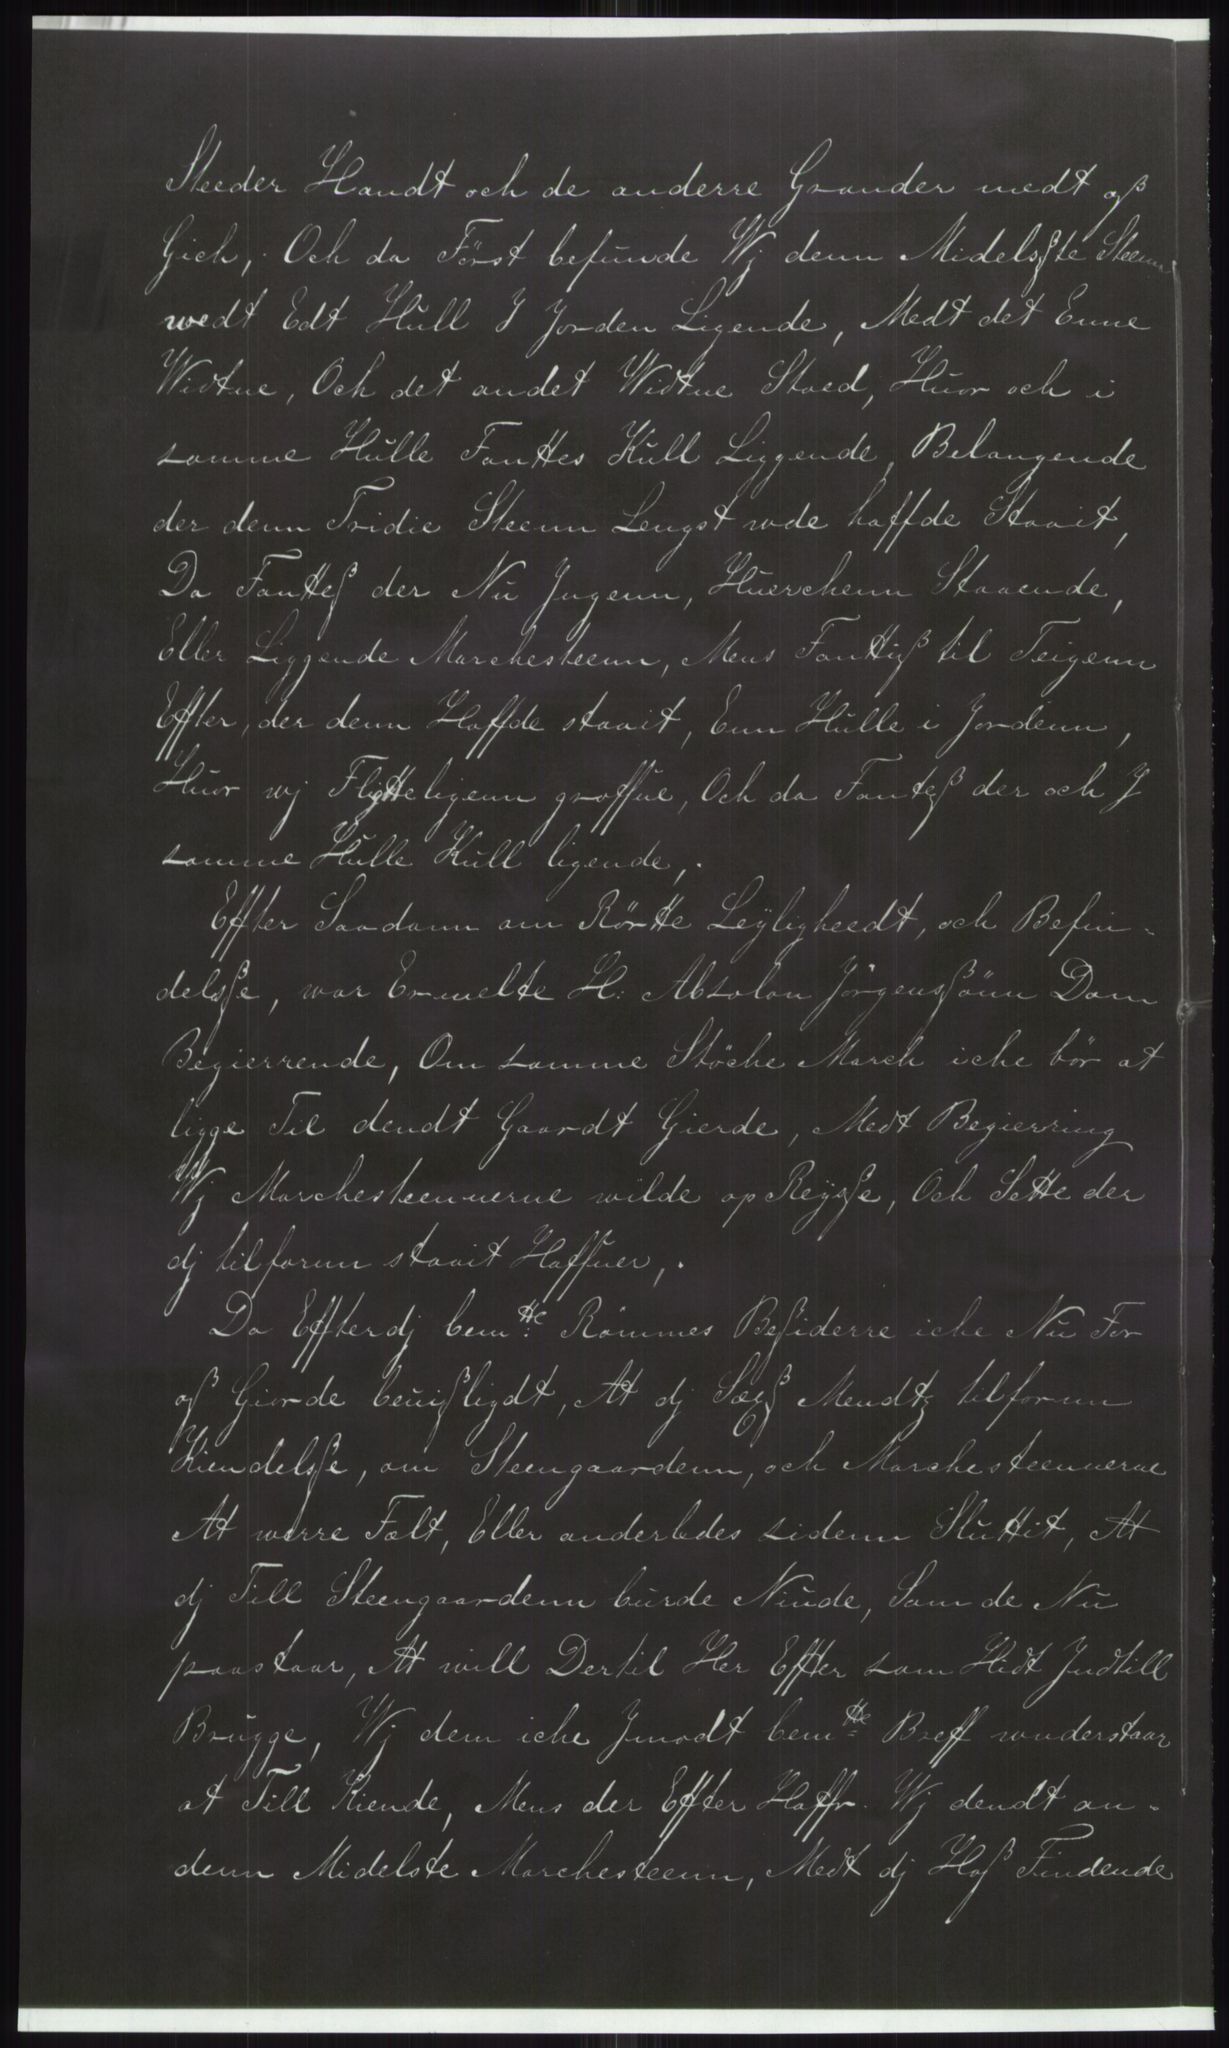 Steeder Handt och de anderre Grander medt oß
Gich,. Och da Först befunde Wj denn Midelsßte Steenn
wedt Edt Hull J Jorden Ligende, Medt det Enne
Widtne, Och det andet Widtne Stoed, Huor och i
samme Hulle Fanttes Kull Liggende, Belangende
der denn Tridie Steenn Lengst wde haffde Staait,
Da Fantteß der Nu Jngenn, Huerchenn Staaende,
Eller Liggende Marchesteenn, Mens Fanttiß til Teigenn
Effter, der denn Haffde staait, Enn Hulle i Jordenn,
Huor wj Flitteligenn groffue, Och da Fanteß der och J
samme Hulle Kull ligende,.
Effter Saadann om Rörtte Leÿligheedt, och Befin-
delsße, war Ermelte H: Absolon Jörgensßönn Dom
Begierrende, Om samme Stöche March iche bör at
ligge Til dendt Gaardt Gierde, Medt Begierring
Wj Marchesteennerne wilde op Reÿsße, Och Sette der
dj tilforn staait Haffuer,.
Da Effterdj bem:tte Römmes Beßiderre iche Nu For
oß Giorde beuißligdt, At dj Sex Mendtz tilforn
Kiendelsße, om Steengaardenn, och Marchesteennerne
At werre Fælt, Eller anderledes sidenn Sluttit, At
dj Till Steengaardenn burde Niude, Som de Nu
paastaar, At will Dertil Her Effter som Hidt Jndtill
Brugge, Wj dem iche Jmodt bemtte Breff wnderstaar
at Till Kiende, Mens der Effter Haffr. Wj dendt an-
denn Midelste Marchesteenn, Medt dj Hoß Findende